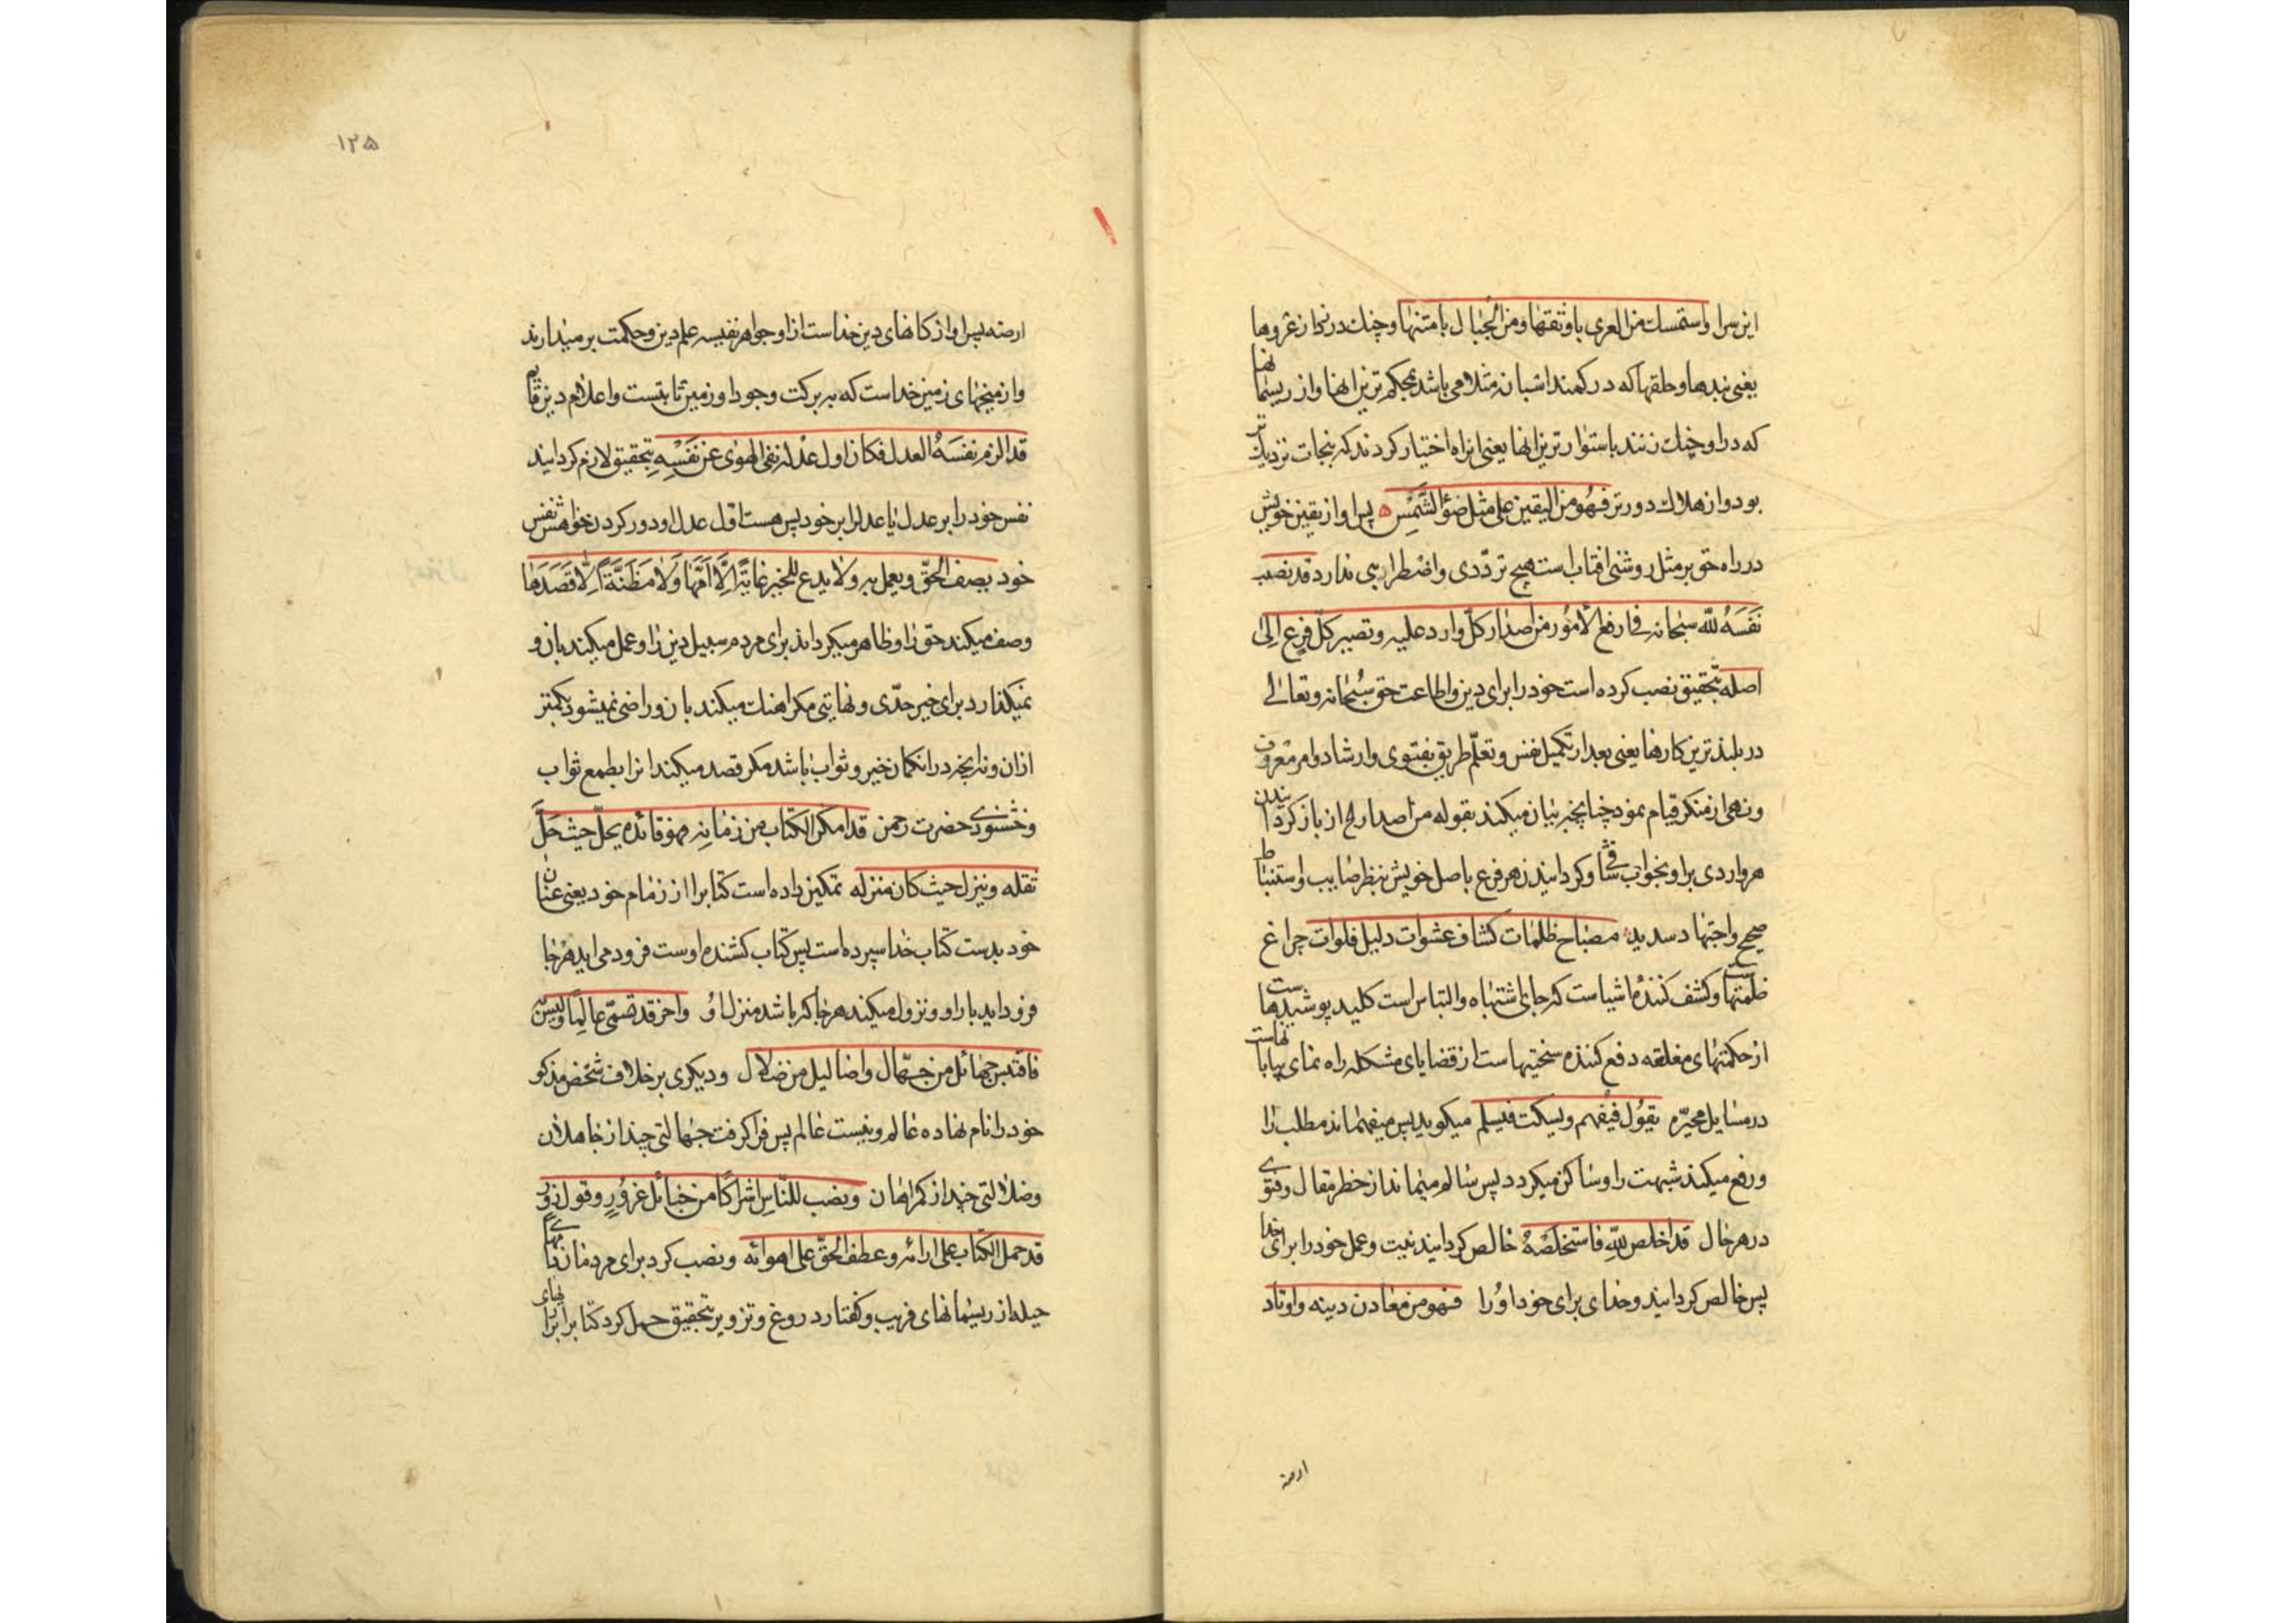 این سرا واستمسك من العری باوثقها و من الجبال بامتنها و چنك در زد از عروها
یعنی بندها و حلقها که در کمند اشبانه مثلا می باشد بمحکم ترین انها و از ریسمانها
که در او چنك زنند باستوار ترین انها یعنی ان راه اختیار کردند که بنجات نزدیك تر
بود و از هلاك دورتر فهو من الیقین علی مثل ضوٴ الشمس ه پس او از یقین خویش
در راه حق بر مثل روشنی افتاب است هیچ تردّدی و اضطرابی ندارد قد نصب
نفسه لله سبحانه فی ارفع الأمور من اصدار کلّ وارد علیه و تصییر کلّ فرع الی
اصله بتحقیق نصب کرده است خود را برای دین و اطاعت حق سبحانه و تعالی
در بلند ترین کارها یعنی بعد از تکمیل نفس و تعلّم طریق بفتوی و ارشاد و امر معروف
و نهی از منکر قیام نمود چنانچه بیان میکند بقوله من اصدار الخ از باز کردانیدن
هر واردی بر او بجواب شافی و کردانیدن هر فرع باصل خویش بنظر صایب و استنباط
صحیح و اجتهاد سدید مصباح ظلمات کشاف عشوات دلیل فلوات چراغ
ظلمتهاست و کشف کنندهٔ اشیا است که جای اشتباه و التباس است کلید پوشیدهاست
از حکمتهای مغلقه دفع کننده سختیهاست از قضایای مشکله راه نمای بیابانهاست
در مسایل محیّره یقول فیفهم و یسکت فیسلم میکوید پس میفهماند مطلب را
و رفع میکند شبهت را و ساکن میکردد پس سالم میماند از خطر مقال و فتوی
در هر حال قد اخلص لله فاستخلصه خالص کردانید نیت و عمل خود را برای خدا
پس خالص کردانید و خدای برای خود او را فهو من معادن دینه و اوتاد
ارضه
۱۲۵
ارضه پس او از کانهای دین خداست از او جواهر نفیسه علم دین و حکمت بر میدارند
و از میخهای زمین خداست که به برکت وجود او زمین ثابتست و اعلام دین قایم
قد الزم نفسه العدل فکان اول عدله نفی الهوی عن نفسه بتحقیق لازم کردانید
نفس خود را بر عدل یا عدل را بر خود پس هست اوّل عدل او دور کردن خواهش نفس
خود یصف الحقّ و یعمل به و لا یدع للخیر غایة الّا امّها و لا مظنّة الّا قصدها
وصف میکند حق را و ظاهر میکرداند برای مردم سبیل دین را و عمل میکند بان و
نمیکذارد برای خیر حدّی و نهایتی مکر اهنك میکند بان و راضی نمیشود بکمتر
ازان و نه انچه در ان کمان خیر و ثواب باشد مکر قصد میکند انرا بطمع ثواب
و خشنودی حضرت رحمن قد امکن الکتاب من زمامه فهو قائده یحلّ حیث حلّ
ثقله و ینزل حیث کان منزله تمکین داده است کتاب را از زمام خود یعنی عنان
خود بدست کتاب خدا سپرده است پس کتاب کشنده اوست فرود می اید هر جا
فرود اید بار او و نزول میکند هر جا که باشد منزل او و اخر قد تسمّی عالما و لیس به
فاقتبس جهائل من جهّال و اضالیل من ضلال و دیکری بر خلاف شخص مذکور
خود را نام نهاده عالم و نیست عالم پس فرا کرفت جهالتی چند از جاهلان
و ضلالتی چند از کمراهان و نصب للنّاس اشراکا من حبائل غرور و قول زور
قد حمل الکتاب علی ارائه و عطف الحقّ علی اهوائه و نصب کرد برای مردمان دامهای
حیله از ریسمانهای فریب و کفتار دروغ و تزویر بتحقیق حمل کرد کتاب را بر رایهای